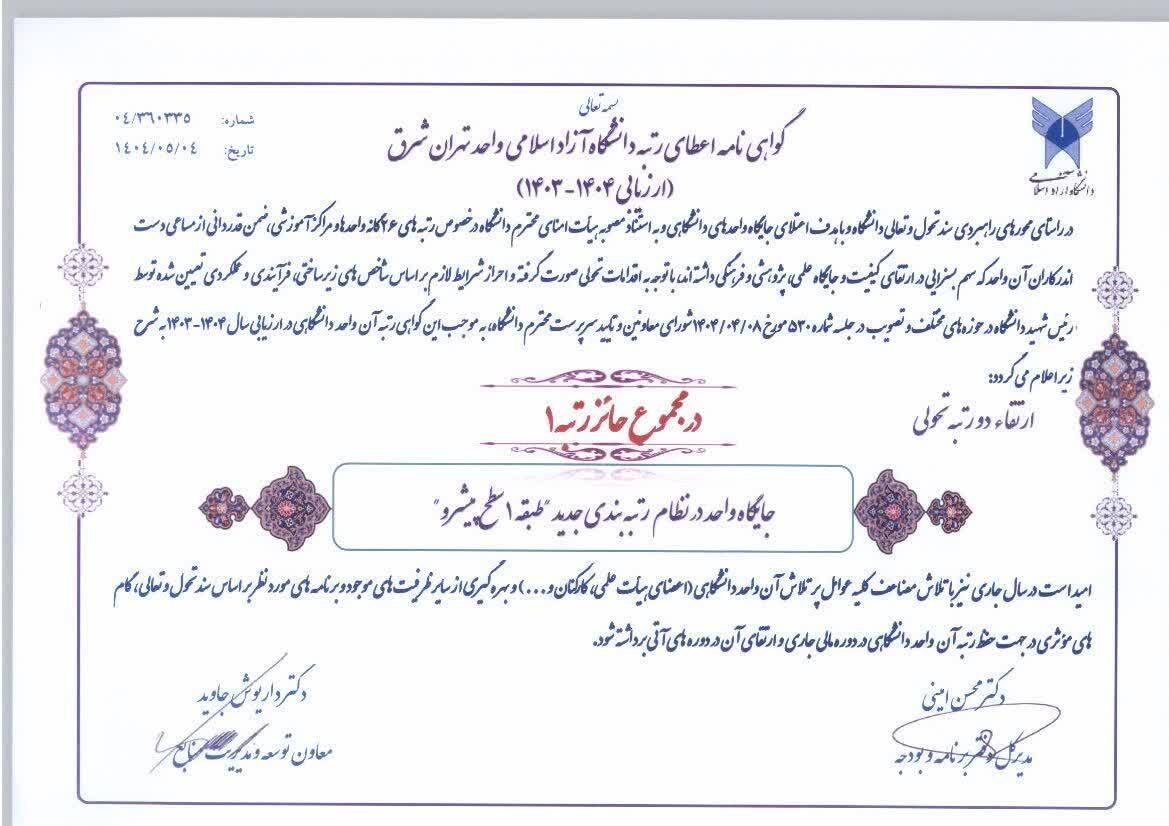 بسمه تعالی
گواهی نامه اعطای رتبه دانشگاه آزاد اسلامی واحد تهران شرق
(ارزیابی ۱۴۰۴-۱۴۰۳)
شماره: ۰۴/۳۶۰۳۳۵
تاریخ: ۱۴۰۴/۰۵/۰۴
دانشگاه آزاد اسلامی
در راستای محورهای راهبردی سند تحول و تعالی دانشگاه و با هدف اعتلای جایگاه واحدهای دانشگاهی و به استناد مصوبه هیأت امنای محترم دانشگاه در خصوص رتبه های ۲۶ گانه واحدها و مراکز آموزشی، ضمن قدردانی از مساعی دست
اندرکاران آن واحد که سهم بسزایی در ارتقای کیفیت و جایگاه علمی، پژوهشی و فرهنگی داشته اند، با توجه به اقدامات تحولی صورت گرفته و احراز شرایط لازم بر اساس شاخص های زیرساختی، فرآیندی و عملکردی تعیین شده توسط
رئیس شهید دانشگاه در حوزه های مختلف و تصویب در جلسه شماره ۵۳۰ مورخ ۱۴۰۴/۰۴/۰۸ شورای معاونین و تایید سرپرست محترم دانشگاه، به موجب این گواهی رتبه آن واحد دانشگاهی در ارزیابی سال ۱۴۰۴-۱۴۰۳ به شرح
زیر اعلام می گردد:
ارتقاء دو رتبه تحولی
در مجموع حائز رتبه ۱
جایگاه واحد در نظام رتبه بندی جدید "طبقه ۱ سطح پیشرو"
امید است در سال جاری نیز با تلاش مضاعف کلیه عوامل پر تلاش آن واحد دانشگاهی (اعضای هیأت علمی، کارکنان و ...) و بهره گیری از سایر ظرفیت های موجود و برنامه های مورد نظر بر اساس سند تحول و تعالی، گام
های مؤثری در جهت حفظ رتبه آن واحد دانشگاهی در دوره مالی جاری و ارتقای آن در دوره های آتی برداشته شود.
دکتر محسن امینی
مدیرکل دفتر برنامه و بودجه
دکتر داریوش جاوید
معاون توسعه و مدیریت منابع